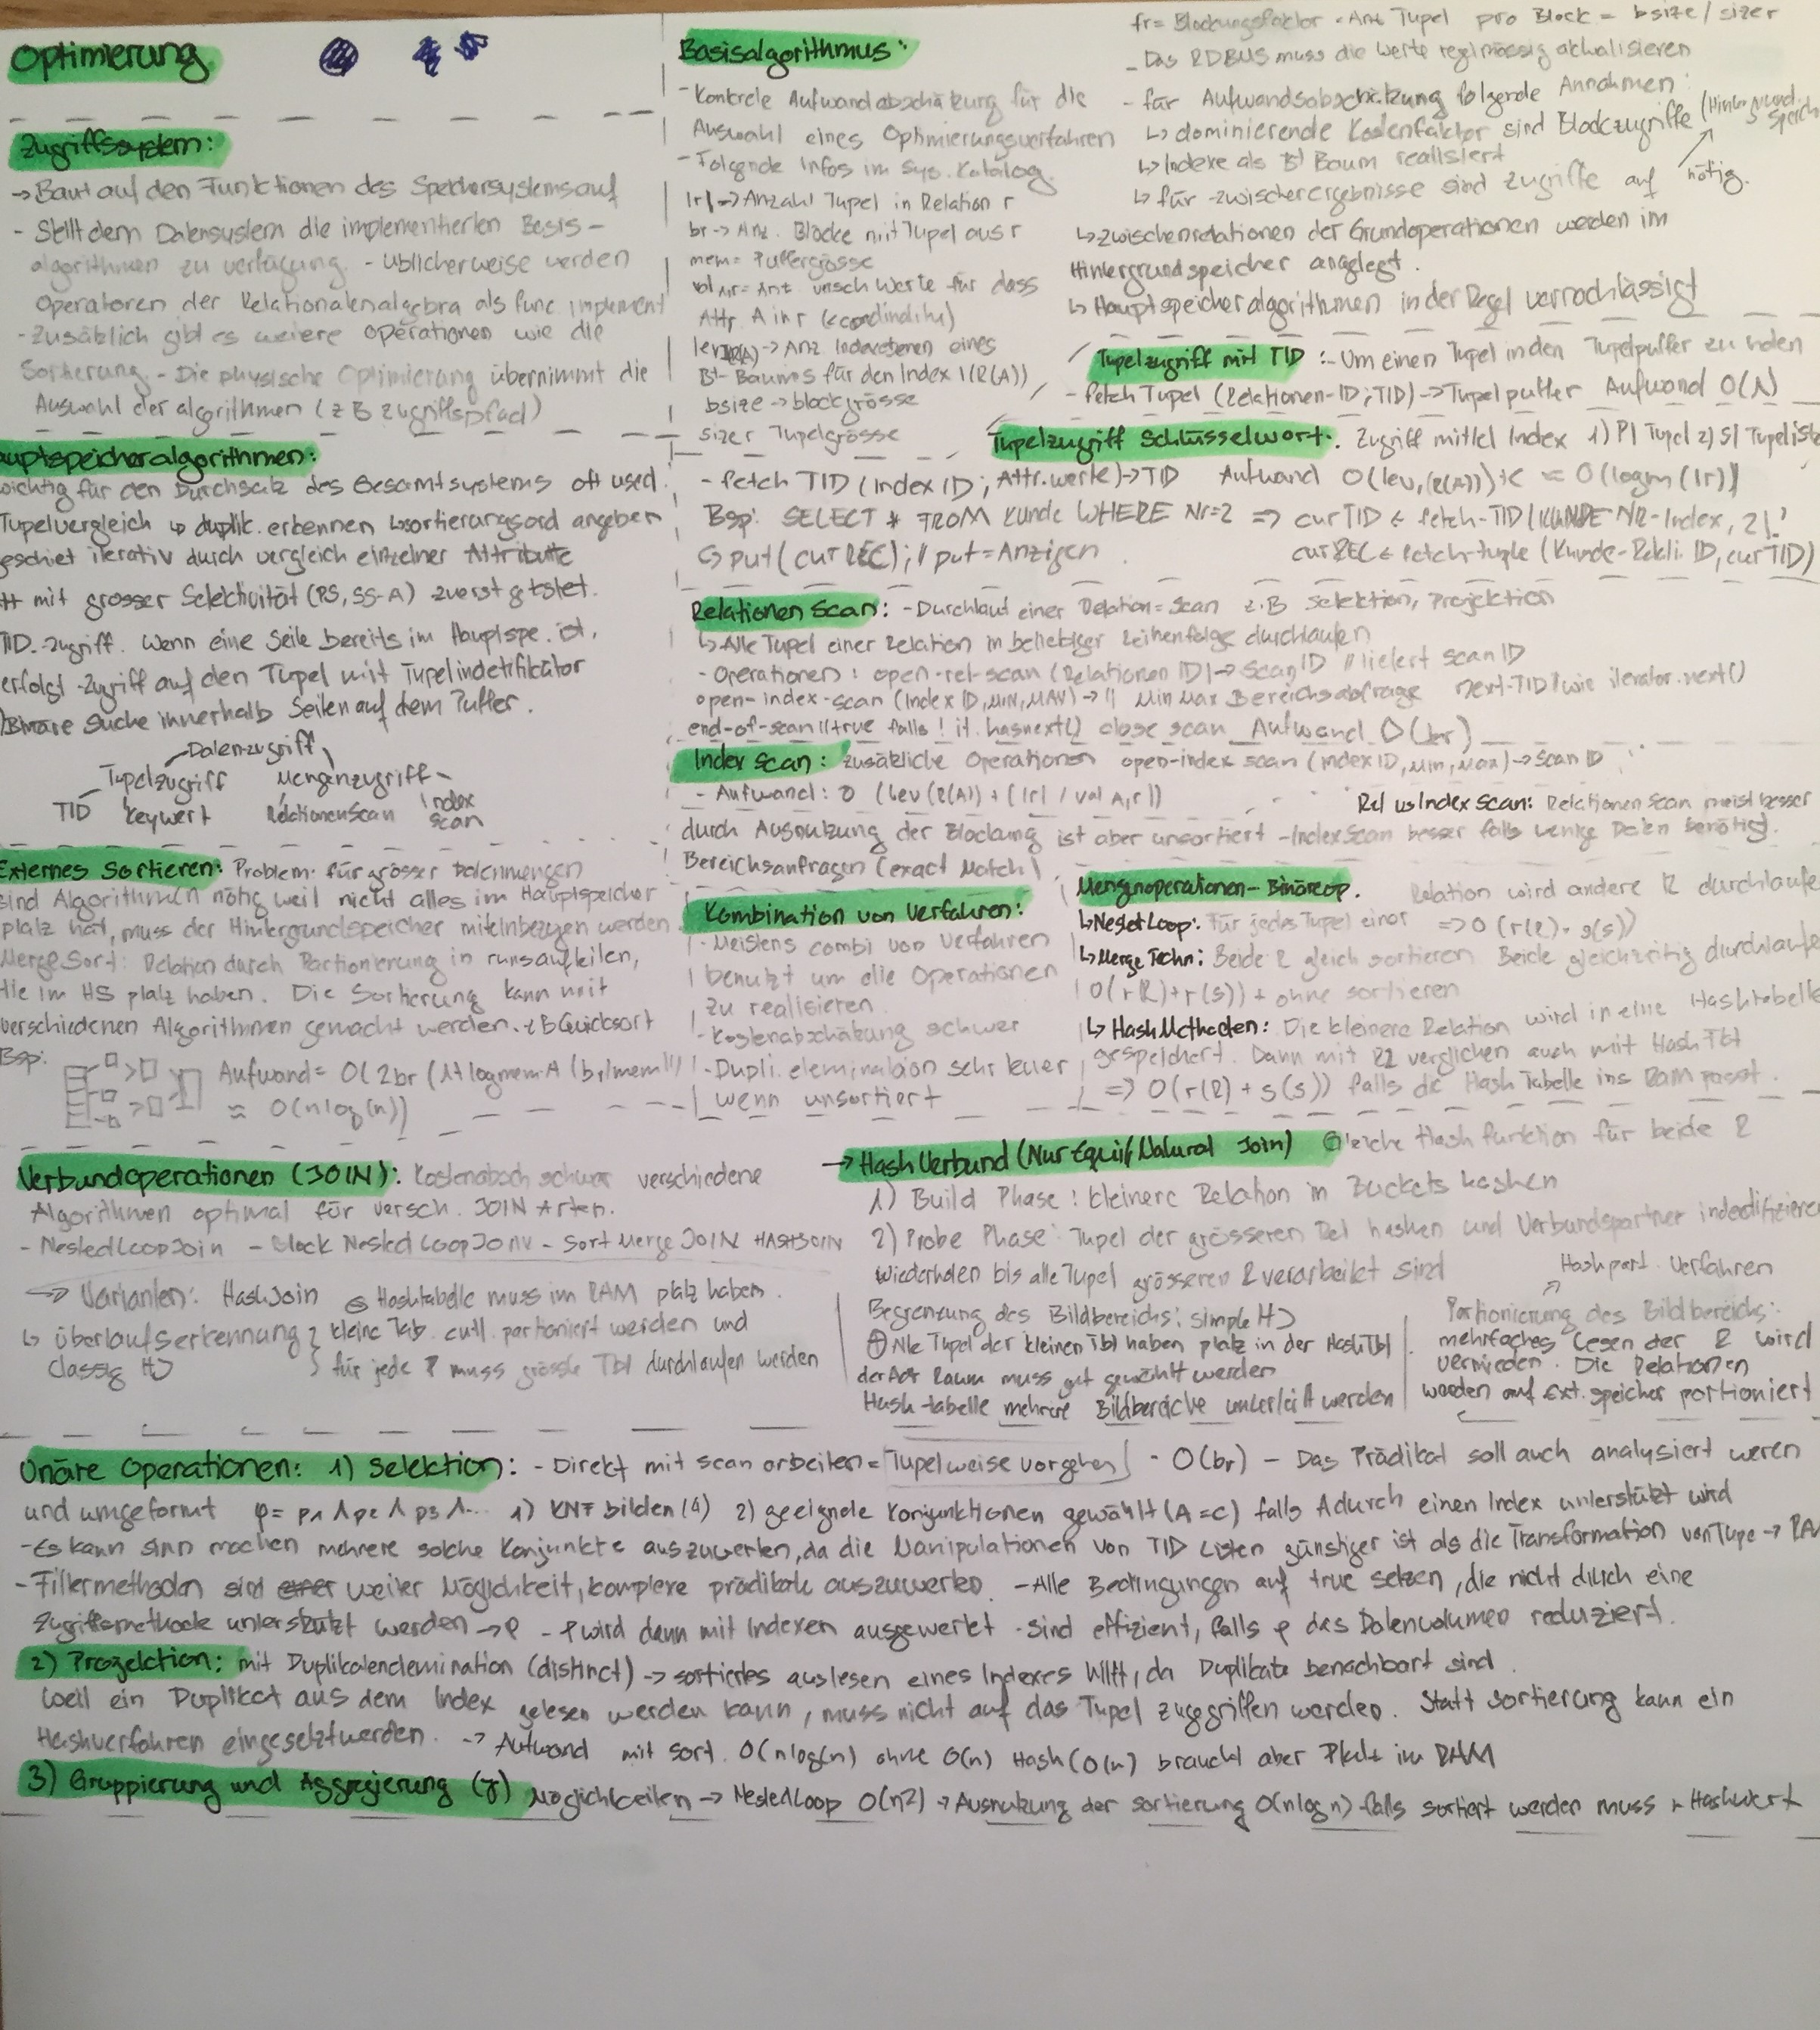 Optimierung
Zugriffssystem:
→ Baut auf den Funktionen des Speichersystems auf
- Stellt dem Datensystem die implementierten Basis-
algorithmen zu verfügung. - üblicherweise werden
Operatoren der Relationalenalgebra als func implement
- Zusäblich gibt es weiere operationen wie die
Sortierung - Die physische Optimierung übernimmt die
Auswahl der algorithmen (z B zugriffspfad)
auptspeicheralgorithmen:
wichtig für den Durchsatz des Gesamtsystems oft used.
Tupelvergleich ↳ duplik. erkennen ↳ sortierungsord angeben
geschiet iterativ durch vergleich einzelner Attribute
mit grosser Selektivität (PS, SS-A) zuerst getstet.
TID-zugriff. Wenn eine Seite bereits im Hauptspe. ist,
erfolgt Zugriff auf den Tupel mit Tupelindetifikator
Binäre Suche innerhalb Seiten auf dem Puffer.
Datenzugriff
Tupelzugriff Mengenzugriff
TID keywert RelationenScan index scan
Externes Sortieren: Problem: für grösser Datenmengen
sind Algorithmen nötig weil nicht alles im Hauptspeicher
platz hat, muss der Hintergrundspeicher miteinbezogen werden
MergeSort: Relation durch Partionierung in runs aufteilen,
die im HS platz haben. Die Sortierung kann mit
verschiedenen Algorithmen gemacht werden. z B Quicksort
Bsp: Aufwand = O(2br (1+ logmem-1 (br/mem)))
≈ O(nlog(n))
Basisalgorithmus:
- Konkrete Aufwandabschätzung für die
Auswahl eines Optimierungsverfahren
- Folgende Infos im Sys. Katalog.
|r| → Anzahl Tupel in Relation r
br → Anz. Blöcke mit Tupel aus r
mem = Puffergrösse
val A,r = Anz versch Werte für dass
Attr A in r
lev I(R(A)) → Anz Indexebenen eines
B+-Baumes für den Index I(R(A))
bsize → blockgrösse
sizer Tupelgrösse
fr = Blockungsfaktor = Anz Tupel pro Block = bsize / sizer
- Das RDBUS muss die werte reglmässig aktualisieren
- für Aufwandsabschätzung folgende Annahmen:
↳ dominierende Kostenfaktor sind Blockzugriffe
↳ Indexe als B+ Baum realisiert
↳ für zwischerergebnisse sind zugriffe auf nötig.
↳ zwischenrelationen der Grundoperationen werden im
Hintergrundspeicher angelegt.
↳ Hauptspeicheralgorithmen in der Regel vernachlässigt
Tupelzugriff mit TID: - Um einen Tupel in den Tupelpuffer zu holen
- fetch Tupel (Relationen-ID; TID) → Tupelpuffer Aufwand O(1)
Tupelzugriff Schlüsselwort: Zugriff mittel Index 1) P| Tupel 2) S| Tupelliste
- fetch TID (Index ID; Attr.werte) → TID Aufwand
Bsp: SELECT * FROM Kunde WHERE Nr=2 => curTID ← fetch-TID (KUNDE-NR-Index, 2);
↳ put(curREC); // put = Anzigen curREC ← fetch-tuple (Kunde-Relli.ID, curTID)
Relationen Scan: - Durchlauf einer Relation = Scan z.B Selektion, Projektion
↳ Alle Tupel einer Relation in beliebiger Reihenfolge durchlaufen
- Operationen: open-rel-scan (Relationen ID) → Scan ID // liefert scan ID
open-index-scan (Index ID, MIN, MAX) → // Min Max Bereichsabfrage next-TID // wie iterator.next()
end-of-scan // true falls !it.hasnext() close scan Aufwand O(br)
Index Scan: zusäbliche Operationen open-index scan (index ID, Min, Max) → Scan ID
- Aufwand: O (lev(R(A)) + (|r| / val A,r))
Rel us Index Scan: Relationen Scan meist besser
durch Ausnutzung der Blockung ist aber unsortiert - Index Scan besser falls wenige Daten benötigt.
Bereichsanfragen (exact Match)
Kombination von Verfahren:
- Meistens combi von Verfahren
benutzt um die Operationen
zu realisieren.
- Kostenabschäbung schwer
- Dupli. elemination sehr teuer
wenn unsortiert
Mengenoperationen - Binäreop.
↳ NestetLoop: Für jedes Tupel einer Relation wird andere R durchlaufe
=> O (r(R) · s(s))
↳ Merge Techn: Beide R gleich sortieren Beide gleichzeitig durchlaufe
O(r(R)+r(s)) + ohne sortieren
↳ HashMethoden: Die kleinere Relation wird in eine Hashtabelle
gespeichert. Dann mit R2 verglichen auch mit Hash Tbl
=> O(r(R) + s(s)) falls die Hash Tabelle ins RAM passt.
Verbundoperationen (JOIN): Kostenabsch schwer verschiedene
Algorithmen optimal für versch. JOIN Arten.
- NestedLoopJoin - Block Nested LoopJoin - Sort Merge JOIN HASHJOIN
→ Varianten: HashJoin Hashtabelle muss im RAM platz haben.
↳ überlaufserkennung } kleine Tab. evtl. partioniert werden und
Classig HJ } für jede P muss grösste Tbl durchlaufen werden
→ Hash Verbund (Nur Equi// Natural Join) Gleiche Hash funktion für beide R
1) Build Phase: kleinere Relation in Buckets hashen
2) Probe Phase: Tupel der grösseren Rel hashen und Verbundspartner
wiederholen bis alle Tupel grösseren R verarbeitet sind
Begrenzung des Bildbereichs: simple HJ
Alle Tupel der kleinen Tbl haben platz in der HashTbl
der Adr Raum muss gut gewählt werden
Hash-tabelle mehrere Bildbereiche unterteilt werden
Hashpart. Verfahren
Partionierung des Bildbereichs:
mehrfaches Lesen der R wird
vermieden. Die Relationen
werden auf Ext. speicher portioniert
Unäre Operationen: 1) Selektion: - Direkt mit scan arbeiten = Tupelweise vorgehen - O(br) - Das Prädikat soll auch analysiert weren
und umgeformt φ = p1 ∧ p2 ∧ p3 ∧... 1) KNF bilden (4) 2) geeignete Konjunktionen gewählt (A=c) falls A durch einen Index unterstützt wird
- Es kann sinn machen mehrere solche Konjunkte auszuwerten, da die Manipulationen von TID Listen günstiger ist als die Transformation von Tupe → RA
- Filtermethoden sind weiter Möglichkeit, komplexe prädikate auszuwerten. - Alle Bedingungen auf true setzen, die nicht durch eine
Zugriffsmethode unterstützt werden → φ - φ wird dann mit Indexen ausgewertet - sind effizient, falls φ das Datenvolumen reduziert.
2) Projektion: mit Duplikatenelemination (distinct) → sortiertes auslesen eines Indexes hilft, da Duplikate benachbart sind.
Weil ein Duplikat aus dem Index gelesen werden kann, muss nicht auf das Tupel zugegriffen werden. Statt sortierung kann ein
Hashverfahren eingesetzt werden. → Aufwand mit sort. O(nlog(n) ohne O(n) Hash (O(n) braucht aber Platz im RAM
3) Gruppierung und Aggregierung (γ) Möglichkeiten → NestedLoop O(n2) → Ausnutzung der sortierung O(nlogn) falls sortiert werden muss + Hashwert